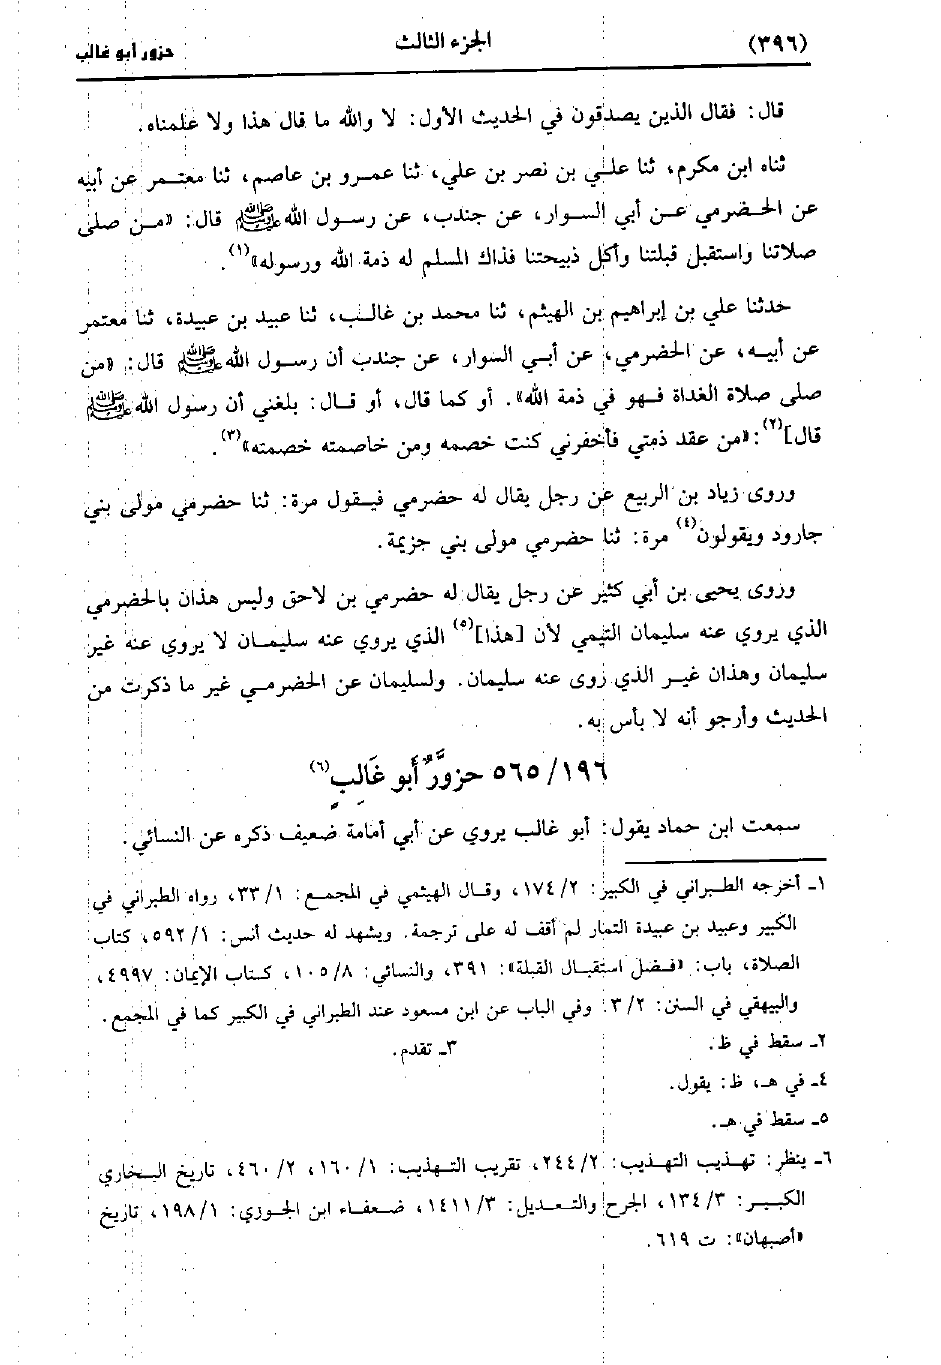 (٣٩٦) الجزء الثالث حزور أبو غالب
قال: فقال الذين يصدقون في الحديث الأول: لا والله ما قال هذا ولا علمناه.
ثناه ابن مكرم، ثنا علي بن نصر بن علي، ثنا عمرو بن عاصم، ثنا معتمر عن أبيه
عن الحضرمي عن أبي السوار، عن جندب، عن رسول الله ﷺ قال: «من صلى
صلاتنا واستقبل قبلتنا وأكل ذبيحتنا فذاك المسلم له ذمة الله ورسوله»(١).
حدثنا علي بن إبراهيم بن الهيثم، ثنا محمد بن غالب، ثنا عبيد بن عبيدة، ثنا معتمر
عن أبيه، عن الحضرمي، عن أبي السوار، عن جندب أن رسول الله ﷺ قال: «من
صلى صلاة الغداة فهو في ذمة الله». أو كما قال، أو قال: بلغني أن رسول الله ﷺ
قال](٢): «من عقد ذمتي فأخفرني كنت خصمه ومن خاصمته خصمته»(٣).
وروى زياد بن الربيع عن رجل يقال له حضرمي فيقول مرة: ثنا حضرمي مولى بني
جارود ويقولون(٤) مرة: ثنا حضرمي مولى بني جزيمة.
وروى يحيى بن أبي كثير عن رجل يقال له حضرمي بن لاحق وليس هذان بالحضرمي
الذي يروي عنه سليمان التيمي لأن [هذا](٥) الذي يروي عنه سليمان لا يروي عنه غير
سليمان وهذان غير الذي روى عنه سليمان. ولسليمان عن الحضرمي غير ما ذكرت من
الحديث وأرجو أنه لا بأس به.
٥٦٥/١٩٦ حزوَّرٌ أَبو غَالِبٍ(٦)
سمعت ابن حماد يقول: أبو غالب يروي عن أبي أمامة ضعيف ذكره عن النسائي.
١ـ أخرجه الطبراني في الكبير: ١٧٤/٢، وقال الهيثمي في المجمع: ٣٣/١، رواه الطبراني في
الكبير وعبيد بن عبيدة التمار لم أقف له على ترجمة. ويشهد له حديث أنس: ٥٩٢/١، كتاب
الصلاة، باب: «فضل استقبال القبلة»: ٣٩١، والنسائي: ١٠٥/٨، كتاب الإيمان: ٤٩٩٧،
والبيهقي في السنن: ٣/٢. وفي الباب عن ابن مسعود عند الطبراني في الكبير كما في المجمع.
٢ـ سقط في ظ. ٣ـ تقدم.
٤ـ في هـ، ظ: يقول.
٥ـ سقط في هـ.
٦ـ ينظر: تهذيب التهذيب: ٢٤٤/٢، تقريب التهذيب: ١٦٠/١، ٤٦٠/٢، تاريخ البخاري
الكبير: ١٣٤/٣، الجرح والتعديل: ١٤١١/٣، ضعفاء ابن الجوزي: ١٩٨/١، تاريخ
«أصبهان»: ت ٦١٩.